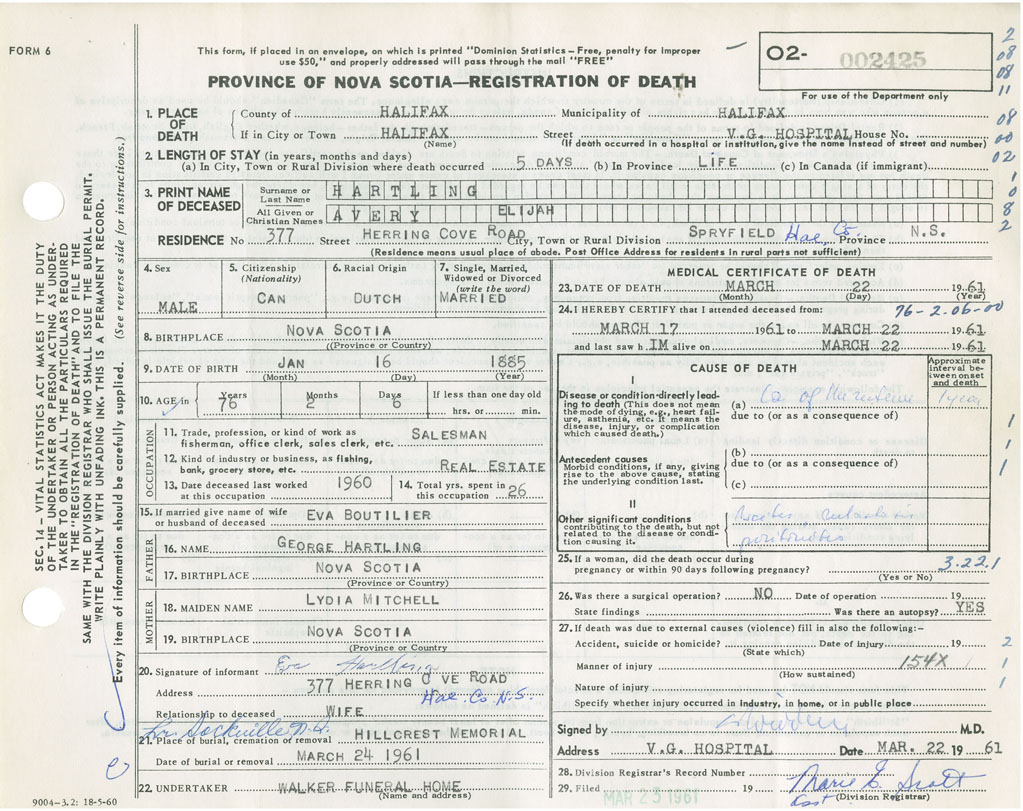 FORM 6
This form, if placed in an envelope, on which is printed "Dominion Statistics—Free, penalty for improper
use $50," and properly addressed will pass through the mail "FREE"
PROVINCE OF NOVA SCOTIA—REGISTRATION OF DEATH
02- 002425
For use of the Department only
2
08
08
11
08
00
02
1
0
8
2
1. PLACE OF DEATH
County of HALIFAX Municipality of HALIFAX
If in City or Town HALIFAX Street V.G. HOSPITAL House No.
(Name) (If death occurred in a hospital or institution, give the name instead of street and number)
2. LENGTH OF STAY (in years, months and days)
(a) In City, Town or Rural Division where death occurred 5 DAYS (b) In Province LIFE (c) In Canada (if immigrant)
3. PRINT NAME OF DECEASED
Surname or Last Name HARTLING
All Given or Christian Names AVERY ELIJAH
RESIDENCE No 377 Street HERRING COVE ROAD City, Town or Rural Division SPRYFIELD Hae Co. Province N.S.
(Residence means usual place of abode. Post Office Address for residents in rural parts not sufficient)
4. Sex
MALE
5. Citizenship (Nationality)
CAN
6. Racial Origin
DUTCH
7. Single, Married, Widowed or Divorced (write the word)
MARRIED
8. BIRTHPLACE NOVA SCOTIA
((Province or Country)
9. DATE OF BIRTH JAN 16 1885
(Month) (Day) (Year)
10. AGE in Years 76 Months 2 Days 6 If less than one day old hrs. or min.
OCCUPATION
11. Trade, profession, or kind of work as fisherman, office clerk, sales clerk, etc. SALESMAN
12. Kind of industry or business, as fishing, bank, grocery store, etc. REAL ESTATE
13. Date deceased last worked at this occupation 1960
14. Total yrs. spent in this occupation 26
15. If married give name of wife or husband of deceased EVA BOUTILIER
FATHER
16. NAME GEORGE HARTLING
17. BIRTHPLACE NOVA SCOTIA
(Province or Country)
MOTHER
18. MAIDEN NAME LYDIA MITCHELL
19. BIRTHPLACE NOVA SCOTIA
(Province or Country
20. Signature of informant Eva Hartling
Address 377 HERRING C VE ROAD
Hae. Co. N.S.
Relationship to deceased WIFE
Sackville N.S.
21. Place of burial, cremation or removal HILLCREST MEMORIAL
Date of burial or removal MARCH 24 1961
22. UNDERTAKER WALKER FUNERAL HOME
(Name and address)
MEDICAL CERTIFICATE OF DEATH
23. DATE OF DEATH MARCH 22 1961
(Month) (Day) (Year)
24. I HEREBY CERTIFY that I attended deceased from: 76-2.06-00
MARCH 17 1961 to MARCH 22 1961
and last saw h IM alive on MARCH 22 1961
CAUSE OF DEATH
Approximate interval between onset and death
I
Disease or condition directly leading to death (This does not mean the mode of dying, e.g., heart failure, asthenia, etc. It means the disease, injury, or complication which caused death.)
(a) Ca of the rectum 1 year
due to (or as a consequence of)
Antecedent causes
Morbid conditions, if any, giving rise to the above cause, stating the underlying condition last.
(b)
due to (or as a consequence of)
(c)
1
1
1
II
Other significant conditions contributing to the death, but not related to the disease or condition causing it.
peritonitis
25. If a woman, did the death occur during pregnancy or within 90 days following pregnancy? 3.22.1
(Yes or No)
26. Was there a surgical operation? NO Date of operation 19
State findings Was there an autopsy? YES
27. If death was due to external causes (violence) fill in also the following:-
Accident, suicide or homicide? Date of injury 19 2
(State which)
Manner of injury 154X 1
(How sustained)
Nature of injury 1
Specify whether injury occurred in industry, in home, or in public place
Signed by M.D.
Address V.G. HOSPITAL Date MAR. 22 19 61
28. Division Registrar's Record Number
29. Filed MAR 23 1961 19 Marie E. Scott
Asst (Division Registrar)
SEC. 14 — VITAL STATISTICS ACT MAKES IT THE DUTY
OF THE UNDERTAKER OR PERSON ACTING AS UNDER-
TAKER TO OBTAIN ALL THE PARTICULARS REQUIRED
IN THE "REGISTRATION OF DEATH" AND TO FILE THE
SAME WITH THE DIVISION REGISTRAR WHO SHALL ISSUE THE BURIAL PERMIT.
WRITE PLAINLY WITH UNFADING INK. THIS IS A PERMANENT RECORD.
Every item of information should be carefully supplied. (See reverse side for instructions.)
9004—3.2: 18-5-60